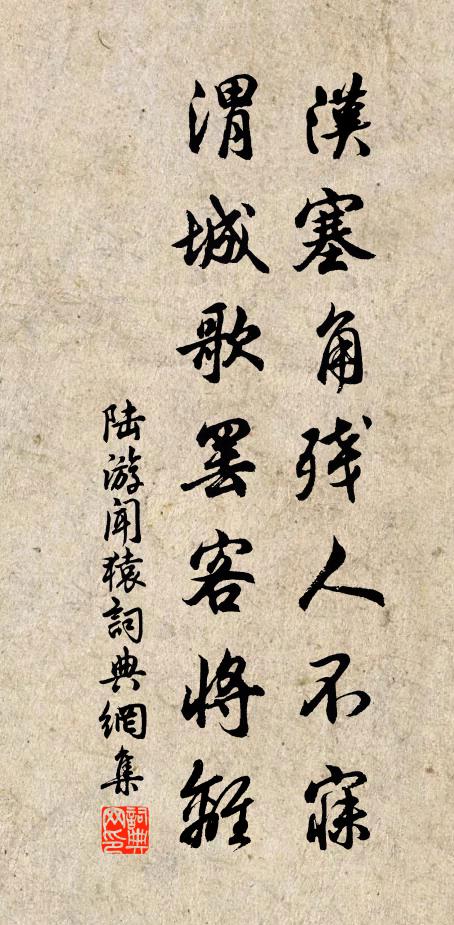 漢塞角残人不寐
渭城歌罢客将離
陆游闻猿詞典網集
詞典网印